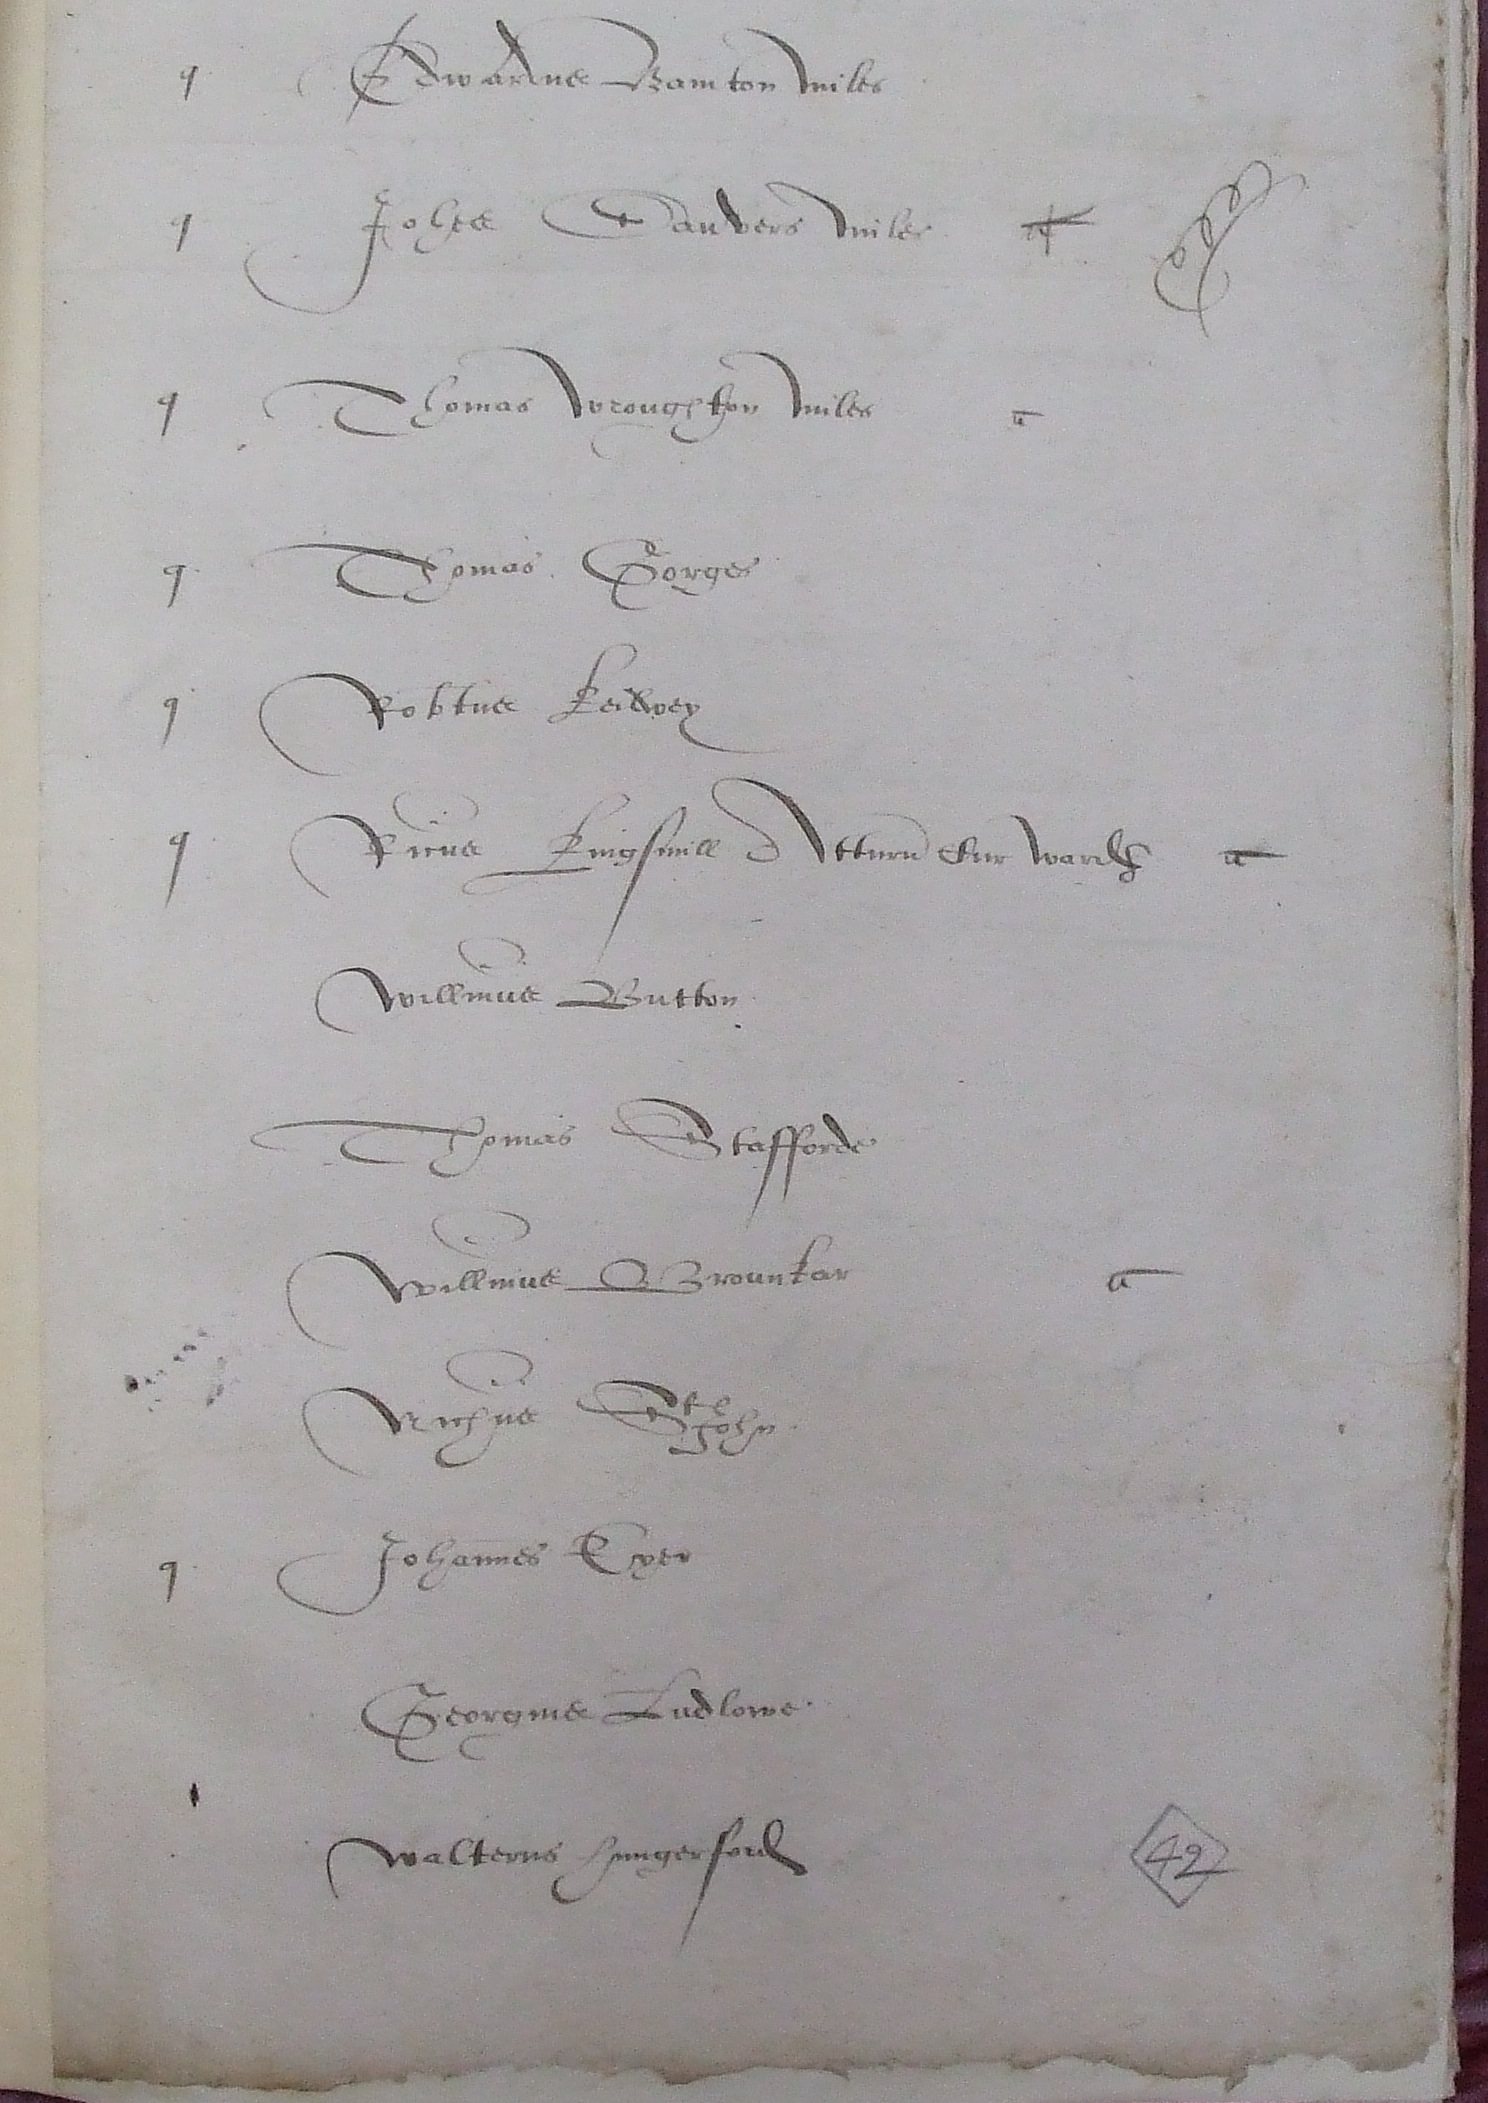 q Edwardus Bamton miles
q Johes Danvers miles
q Thomas Wroughton miles u
q Thomas Gorges
q Robtus Keilwey
q Ricus Kingsmill Atturn Cur Ward u
Willmus Button
Thomas Stafforde
Willmus Brounkar u
Nichus St John
q Johannes Eyer
Georgius Ludlowe
Walterus Hungerford
42